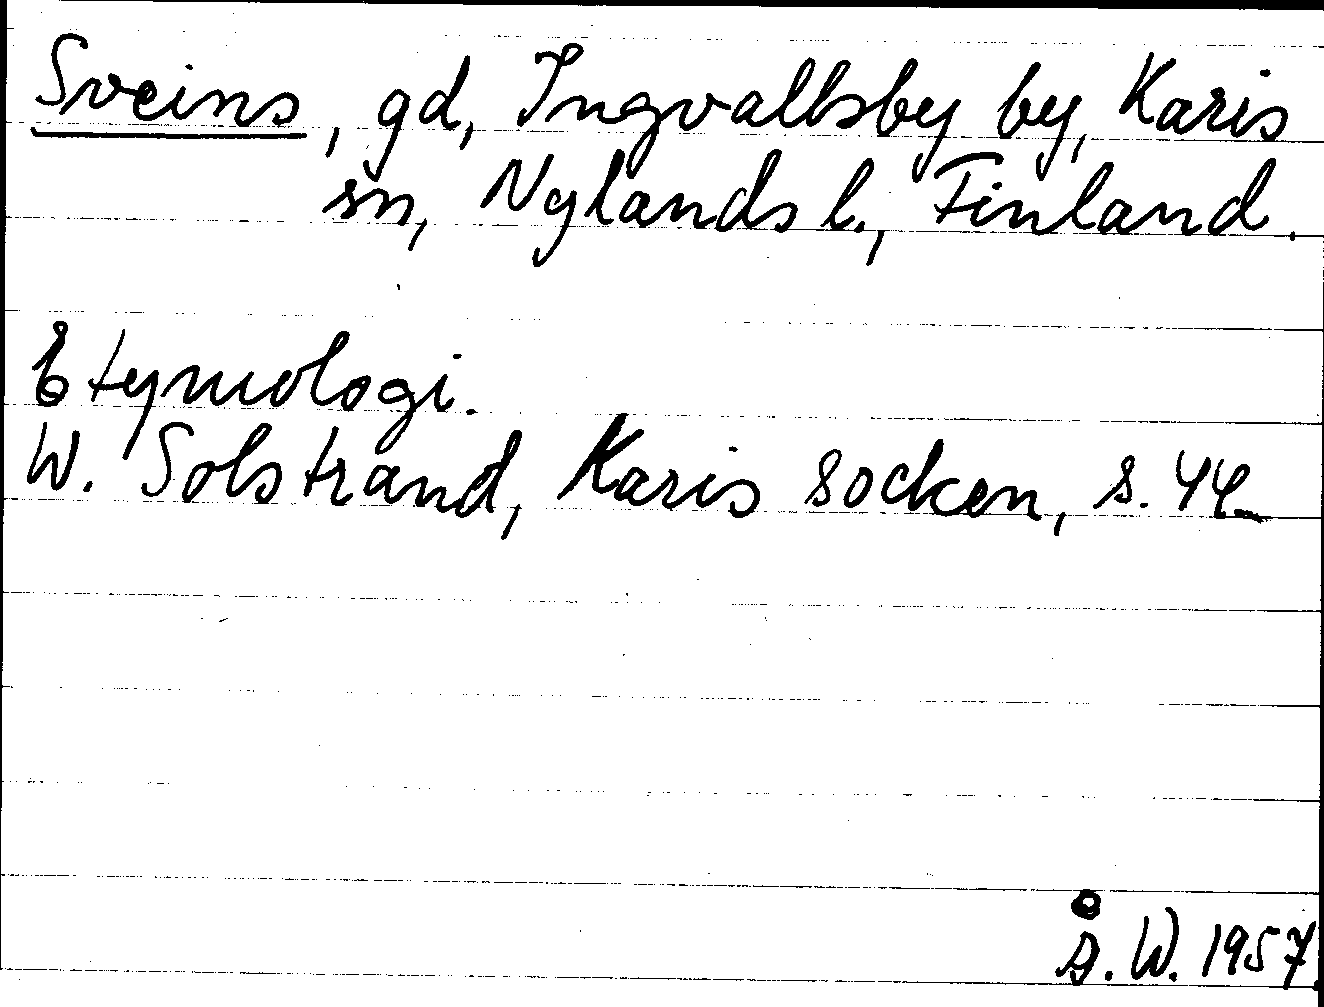 Sveins, gd, Ingvallsby by, Karis
sn, Nylands l., Finland.
Etymologi.
W. Solstrand, Karis socken, s. 44.
Å. W. 1957.